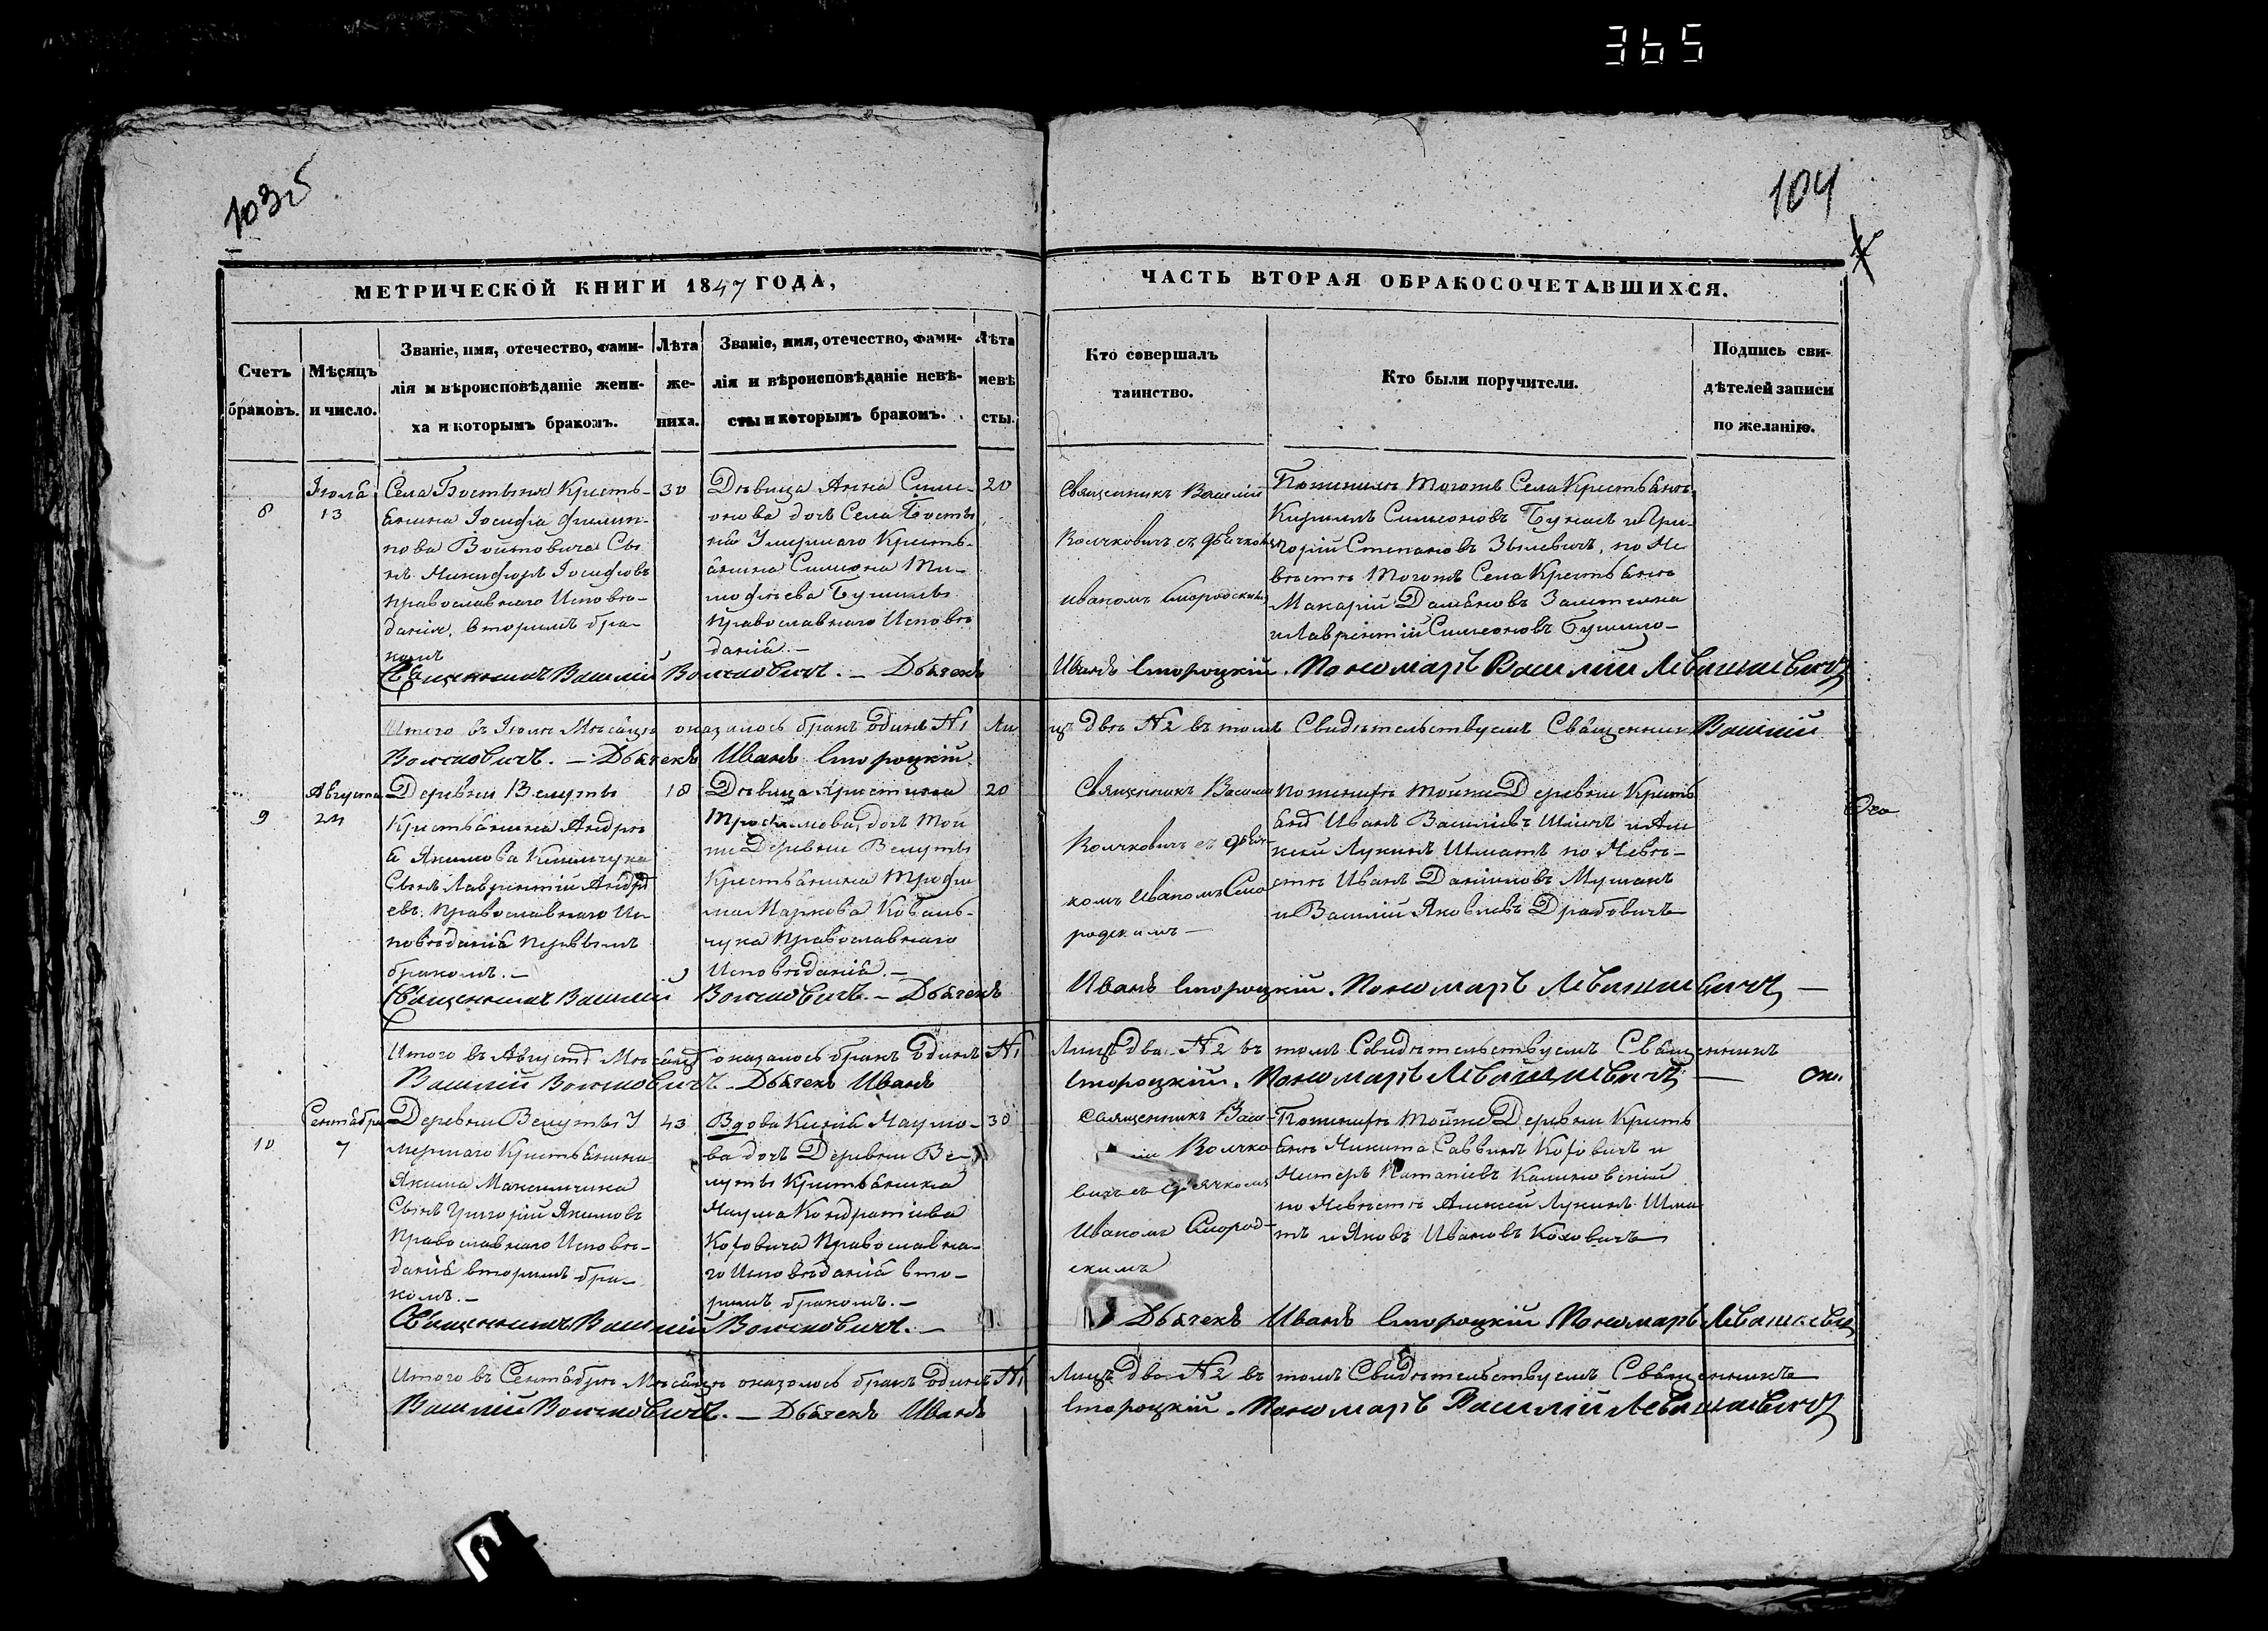 365
103
104
МЕТРИЧЕСКОЙ КНИГИ 1847 ГОДА,
ЧАСТЬ ВТОРАЯ ОБРАКОСОЧЕТАВШИХСЯ.
Счетъ
браковъ.
Мѣсяцъ
и число.
Званіе, имя, отечество, фами-
лія и вѣроисповѣданіе жени-
ха и которымъ бракомъ.
Лѣта
же-
ниха.
Званіе, имя, отечество, фами-
лія и вѣроисповѣданіе невѣ-
сты и которымъ бракомъ.
Лѣта
невѣ
сты.
Кто совершалъ
таинство.
Кто были поручители.
Подпись сви-
дѣтелей записи
по желанію.
8
Іюля
13
Села Бостыня Кресть-
янина Іосифа Филип-
пова Войтовича Сы
нъ Никифоръ Іосифовъ
православнаго Исповѣ-
данія, вторымъ бра-
комъ
30
Дѣвица Анна Симе-
онова дочь Села Босты
ня Умершаго Кресть-
янина Симеона Ти-
мофѣева
православнаго Исповѣ
данія.-
20
Священникъ Василій
Волчковичъ съ дьячкомъ
Иваномъ
По женихѣ Тогожъ Села Крестьяне
Кириллъ Симеоновъ и Гри-
горій Степановъ по Не
вѣстѣ Тогожъ Села Крестьяне
Макарій
и Лаврентій Симеоновъ
Священникъ Василій Волчковичъ. - Дьячекъ
Иванъ Смороцкій. Пономарь Василій Левашкевичъ
Итого въ Іюлѣ Мѣсяцѣ оказалось бракъ одинъ №1 Ли
цъ двѣ №2 въ томъ Свидѣтельствуемъ Священникъ Василій
Волчковичъ. - Дьячекъ Иванъ Смороцкій
9
Августа
24
Деревни Велуты
Крестьянина Андрея
Якимова Климчука
Сынъ Лаврентій Андре
евъ. православнаго Ис-
повѣданія первымъ
бракомъ.-
18
Дѣвица Христина
Трофимова, дочь Той
же Деревни Велуты
Крестьянина Трофи
ма Маркова Коваль-
чука православнаго
Исповѣданія.-
20
Священникъ Василій
Волчковичъ съ дьяч-
комъ Иваномъ Смо
родскимъ-
По женихѣ тойже Деревни Кресть
яне Иванъ Василіевъ и Але
ксѣй Лукинъ Шматъ по Невѣ-
стѣ Иванъ Даниловъ
и Василій Яковлевъ Драбовичъ
Священникъ Василій Волчковичъ.- Дьячекъ
Иванъ Смороцкій. Пономарь Левашкевичъ -
Итого въ Августѣ Мѣсяцѣ оказалось бракъ одинъ №1
Лицъ два №2 въ томъ Свидѣтельствуемъ Священникъ
Василій Волчковичъ - Дьячекъ Иванъ
Смороцкій. Пономарь Левашкевичъ -
10
Сентября
7
Деревни Велуты У
мершаго Крестьянина
Якима Максимчика
Сынъ Григорій Якимовъ
Православнаго Исповѣ-
данія вторымъ бра-
комъ.-
43
Вдова Ксенія Наумо-
ва дочь Деревни Ве-
луты Крестьянина
Наума Кондратіева
Коховича Православна-
го Исповѣданія вто-
рымъ бракомъ.-
30
Священникъ Васи-
лій Волчко
вичъ съ дьячкомъ
Иваномъ Смород-
скимъ
По женихѣ тойже Деревни Кресть
яне Никита Саввинъ Коховичъ и
Нестеръ
по Невѣстѣ Алексѣй Лукинъ Шма
тъ и Яковъ Ивановъ Коховичъ
Священникъ Василій Волчковичъ. -
Дьячекъ Иванъ Смороцкій Пономарь Левашкевичъ
Итого въ Сентябрѣ Мѣсяцѣ оказалось бракъ одинъ №1
Лицъ два №2 въ томъ Свидѣтельствуемъ Священникъ
Василій Волчковичъ. - Дьячекъ Иванъ
Смороцкій. Пономарь Василій Левашкевичъ